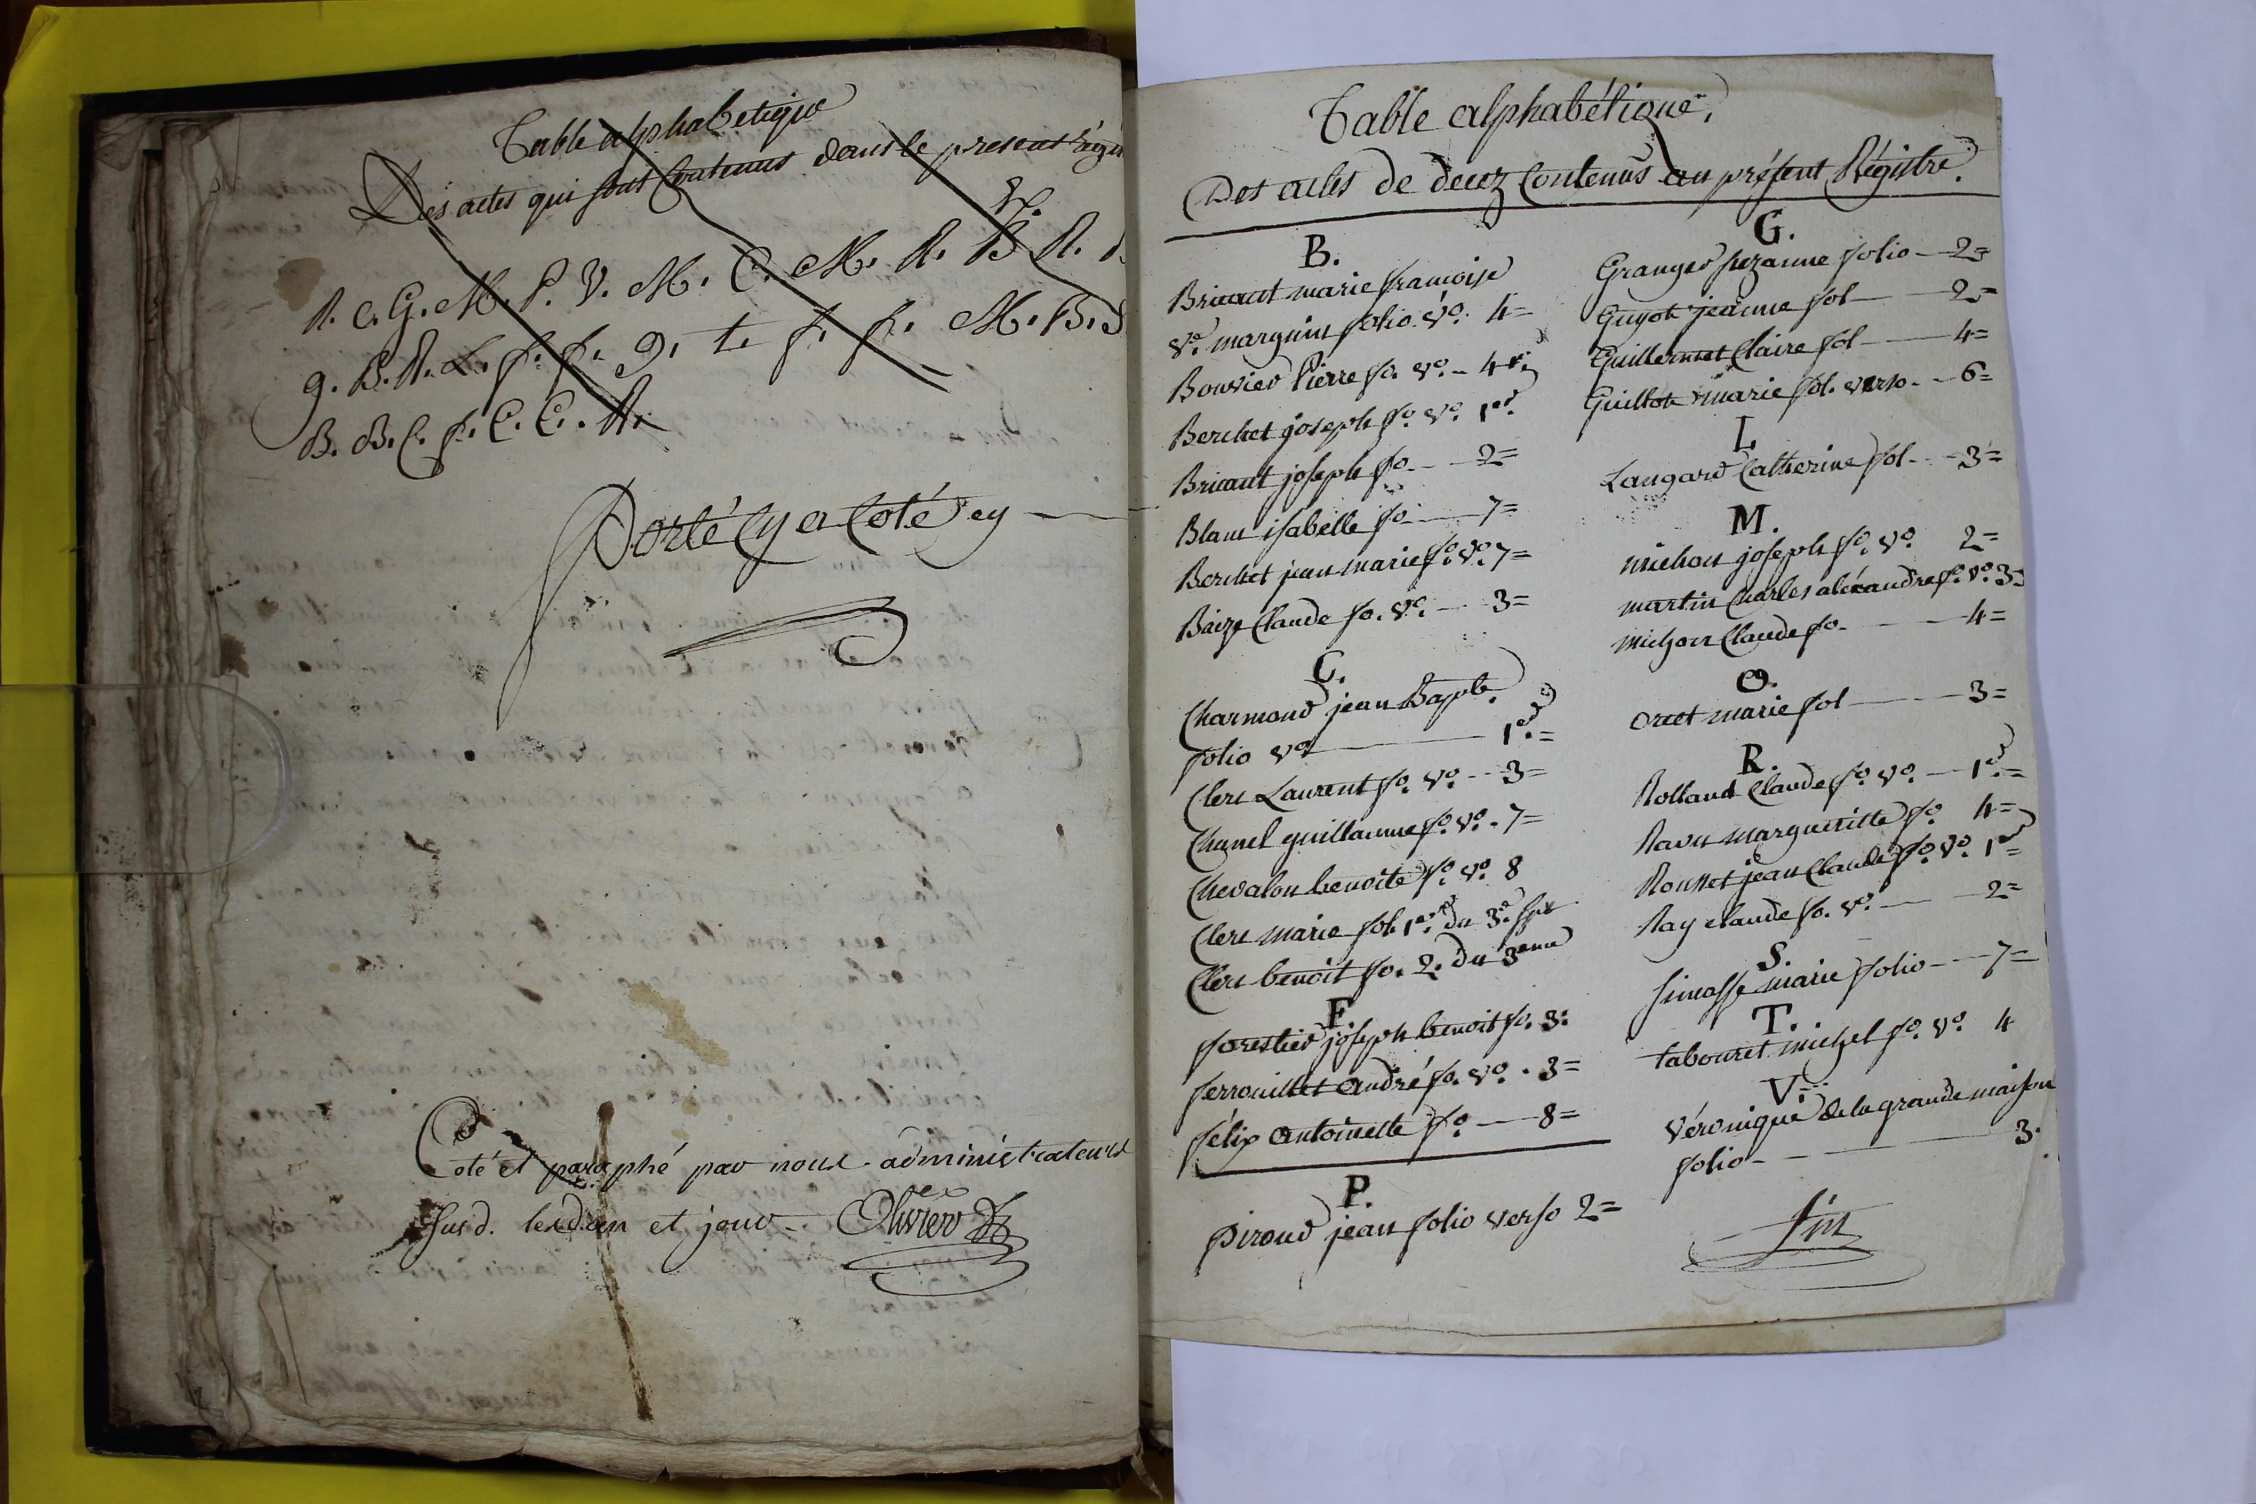 Table alphabetique
Des actes qui sont Contenus dans le present régi
R. C. G. M. P. V. M. C. M. R. B R.
g. B. R. L. f. f. g. t. f. f. M. B. S
B. B. C. f. C. C. R.
Porté Cy a Coté ey
Coté et paraphé par nous administrateurs
Susd. les d. an et jour Olivier
Table alphabétique,
Des actes de decez Contenus au présent Régistre.
B.
Bricaut marie francoise
Ve. marguin folio. Vo. 4=
Bouvier Pierre fo. vo. 4
Berchet joseph fo. vo. 1er
Bricaut joseph fo. 2=
Blanc isabelle fo 7=
Berchet jean marie fo. Vo. 7=
Baize Claude fo. Vo. 3=
C.
Charmond jean Bapte.
folio vo 1er=
Clerc Laurent fo. vo. 3=
Chanel guillaume fo. vo. 7=
Chevalon benoite fo. vo. 8
Clerc marie fol. 1er du 3e
Clerc benoit fo. 2. du 3eme
F
forestier joseph benoit fo. 3=
ferrouillet andré fo. vo. 3=
félix antoinette fo 8=
P.
piroud jean folio verso 2=
G.
Granger suzanne folio 2=
Guyot jeanne fol 2=
Guillermet Claire fol 4=
Guillot marie fol. verso 6=
L
Laugard Catherine fol 3=
M.
michon joseph fo. vo. 2=
martin Charles aléxandre fo. vo. 3=
michon Claude fo. 4=
O.
orcet marie fol 3=
R.
Rolland Claude fo. vo. 1er=
Ravu margueritte fo 4=
Rousset jean Claude fo. vo. 1er=
Ray claude fo. vo. 2=
S.
simasse marie folio 7=
T.
tabouret michel fo. vo. 4
V.
véronique de la grande maison
folio 3.
fin